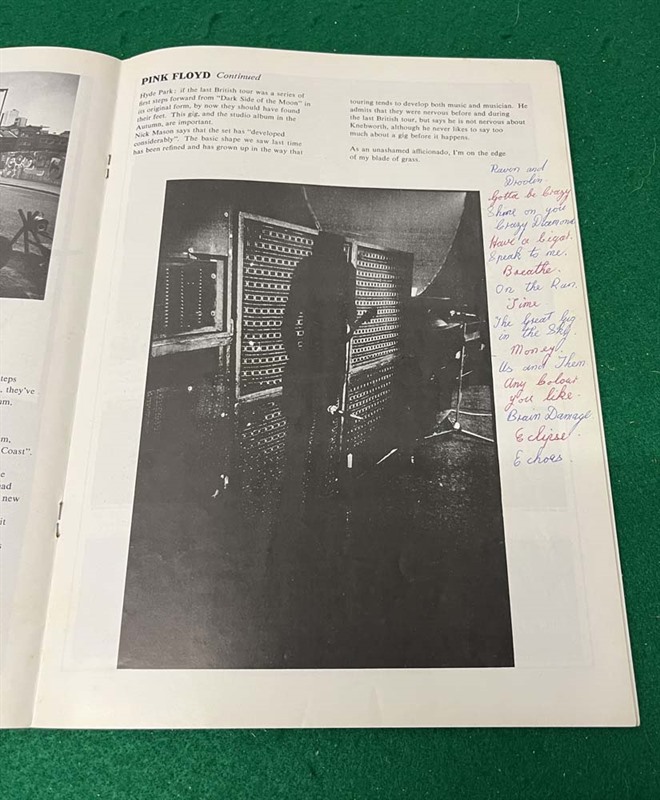 PINK FLOYD Continued
Hyde Park; if the last British tour was a series of
first steps forward from "Dark Side of the Moon" in
its original form, by now they should have found
their feet. This gig, and the studio album in the
Autumn, are important.
Nick Mason says that the set has "developed
considerably". The basic shape we saw last time
has been refined and has grown up in the way that
touring tends to develop both music and musician. He
admits that they were nervous before and during
the last British tour, but says he is not nervous about
Knebworth, although he never likes to say too
much about a gig before it happens.
As an unashamed afficionado, I'm on the edge
of my blade of grass.
Raven and
Droolin.
Gotta be Crazy
Shine on you
Crazy Diamond
Have a Cigar.
Speak to me.
Breathe.
On the Run.
Time
The Great Gig
in the Sky.
Money
Us and Them
Any Colour
you like.
Brain Damage
Eclipse.
Echoes.
teps
, they've
um,
m,
Coast".
e
ad
new
it
s